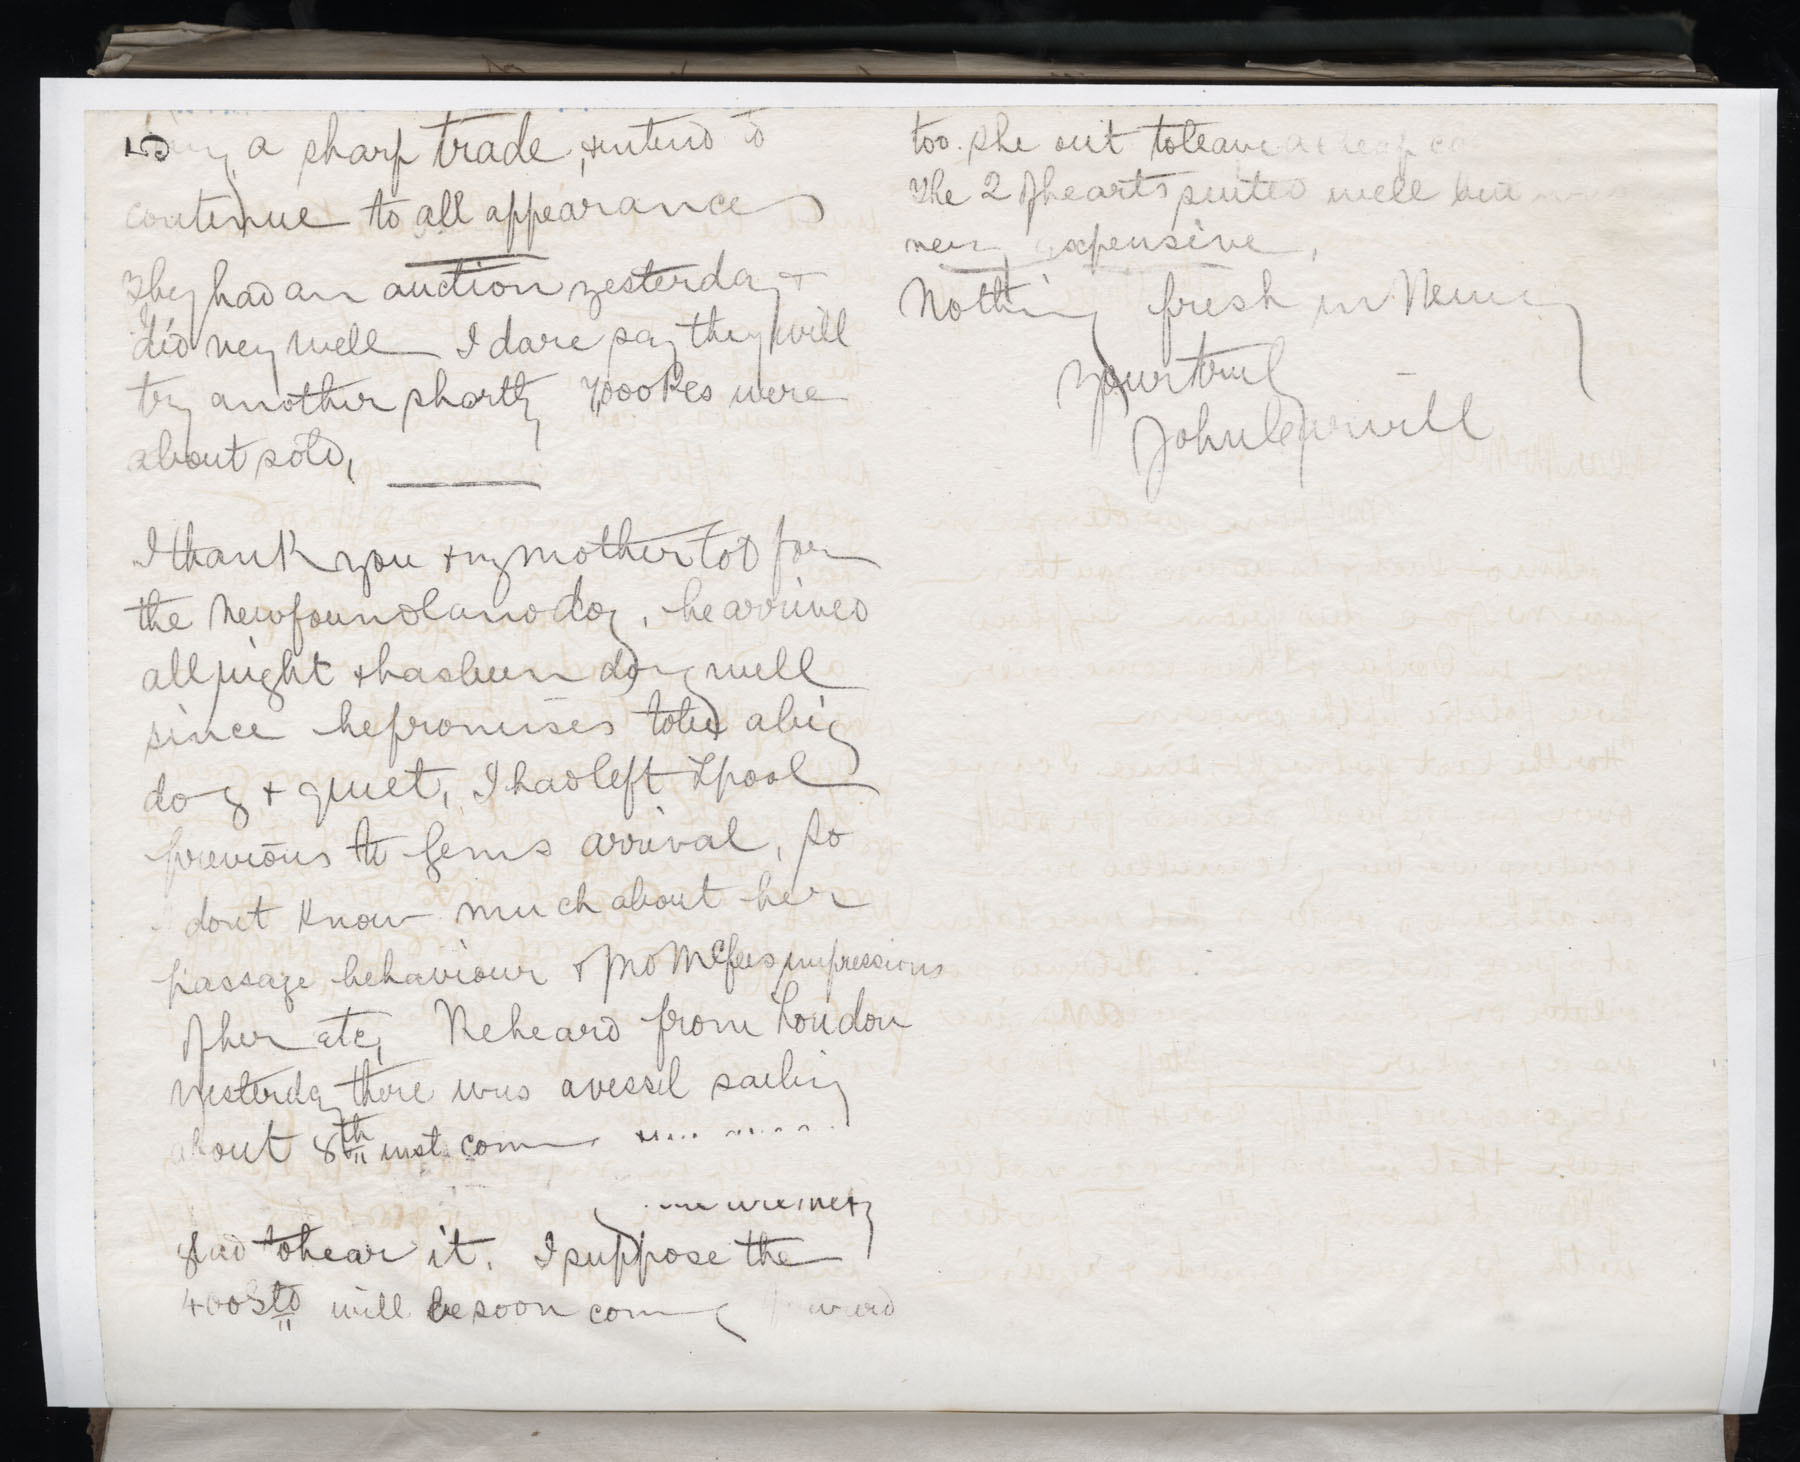 5
a sharp trade, & intend to
continue to all appearances
They had an auction yesterday &
did very well I dare say they will
try another shortly 7000 Pcs were
about sold,
I thank you & my mother too for
the Newfoundland dog, he arrived
all right & has been doing well
since he promises to be a big
dog & quiet, I had left Lpool
previous to Gems arrival, so
dont know much about her
passage, behaviour & McFees impressions
of her etc, We heard from London
yesterday there was a vessel sailing
about 8th inst.
glad to hear it. I suppose the
400 Std will be soon coming
too. She out to leave a
The 2 of hearts suited well but
very expensive,
Nothing fresh in Newry
Yours truly
John